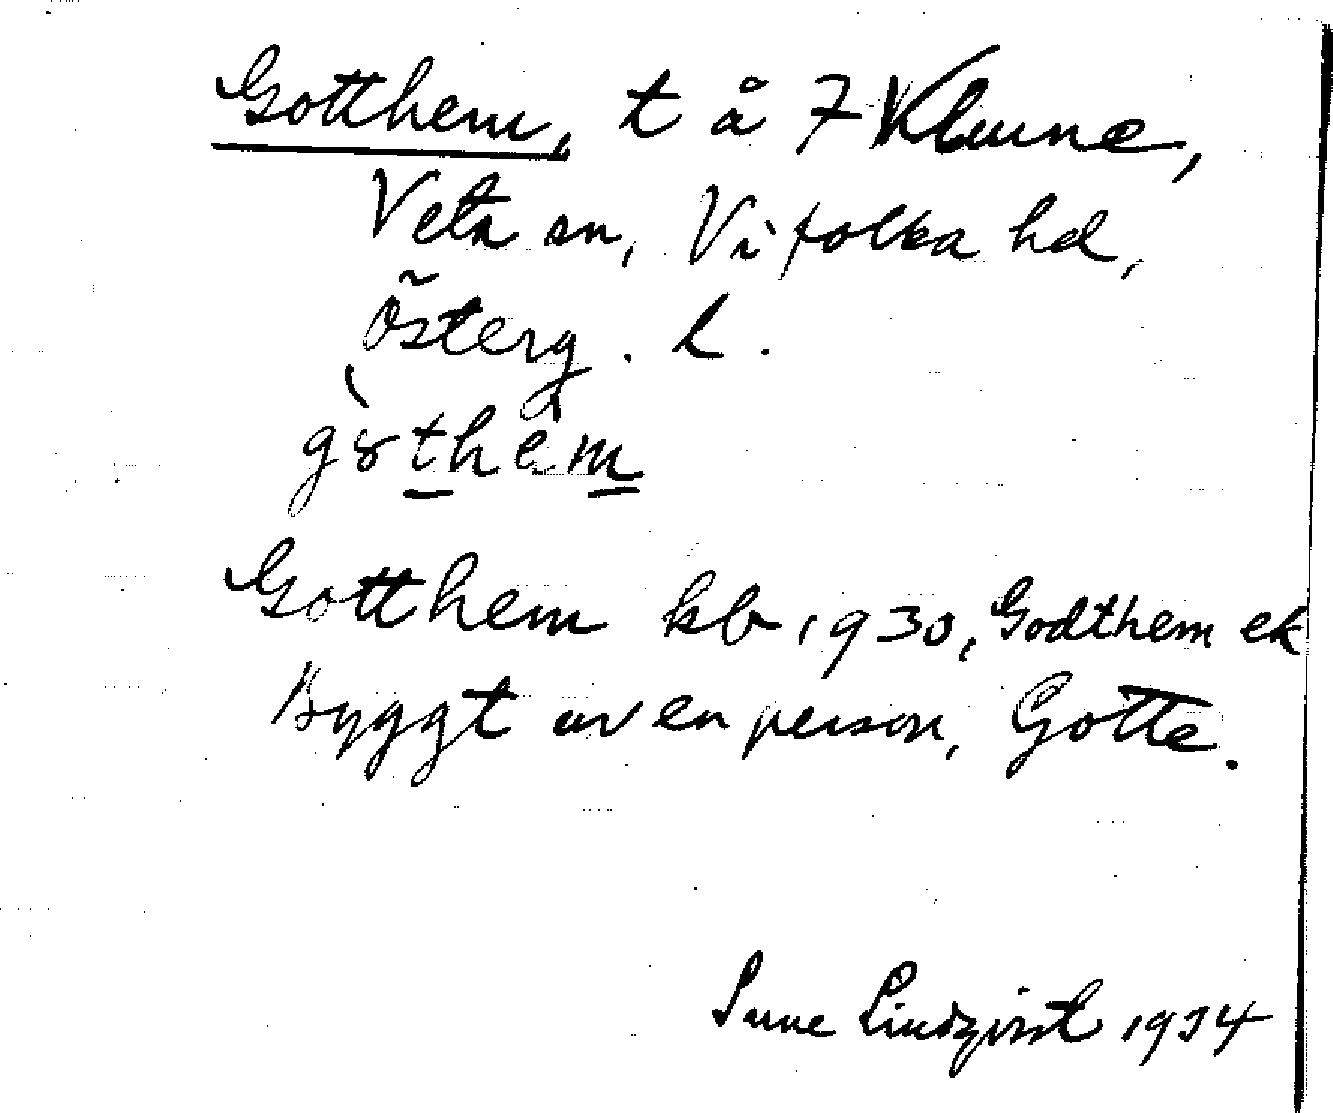 Gotthem, t å 7 Klunne,
Veta sn, Vifolka hd,
Österg. l.
Gotthem kb 1930, Godthem ek
Byggt av en person, Gotte.
Sune Lindqvist 1934